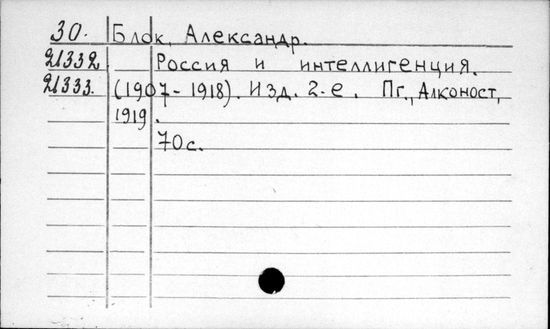 30. Блок, Александр.
21332. Россия и интеллигенция.
21333. (1907-1918). Изд. 2-е. Пг., Алконост,
1919.
70с.